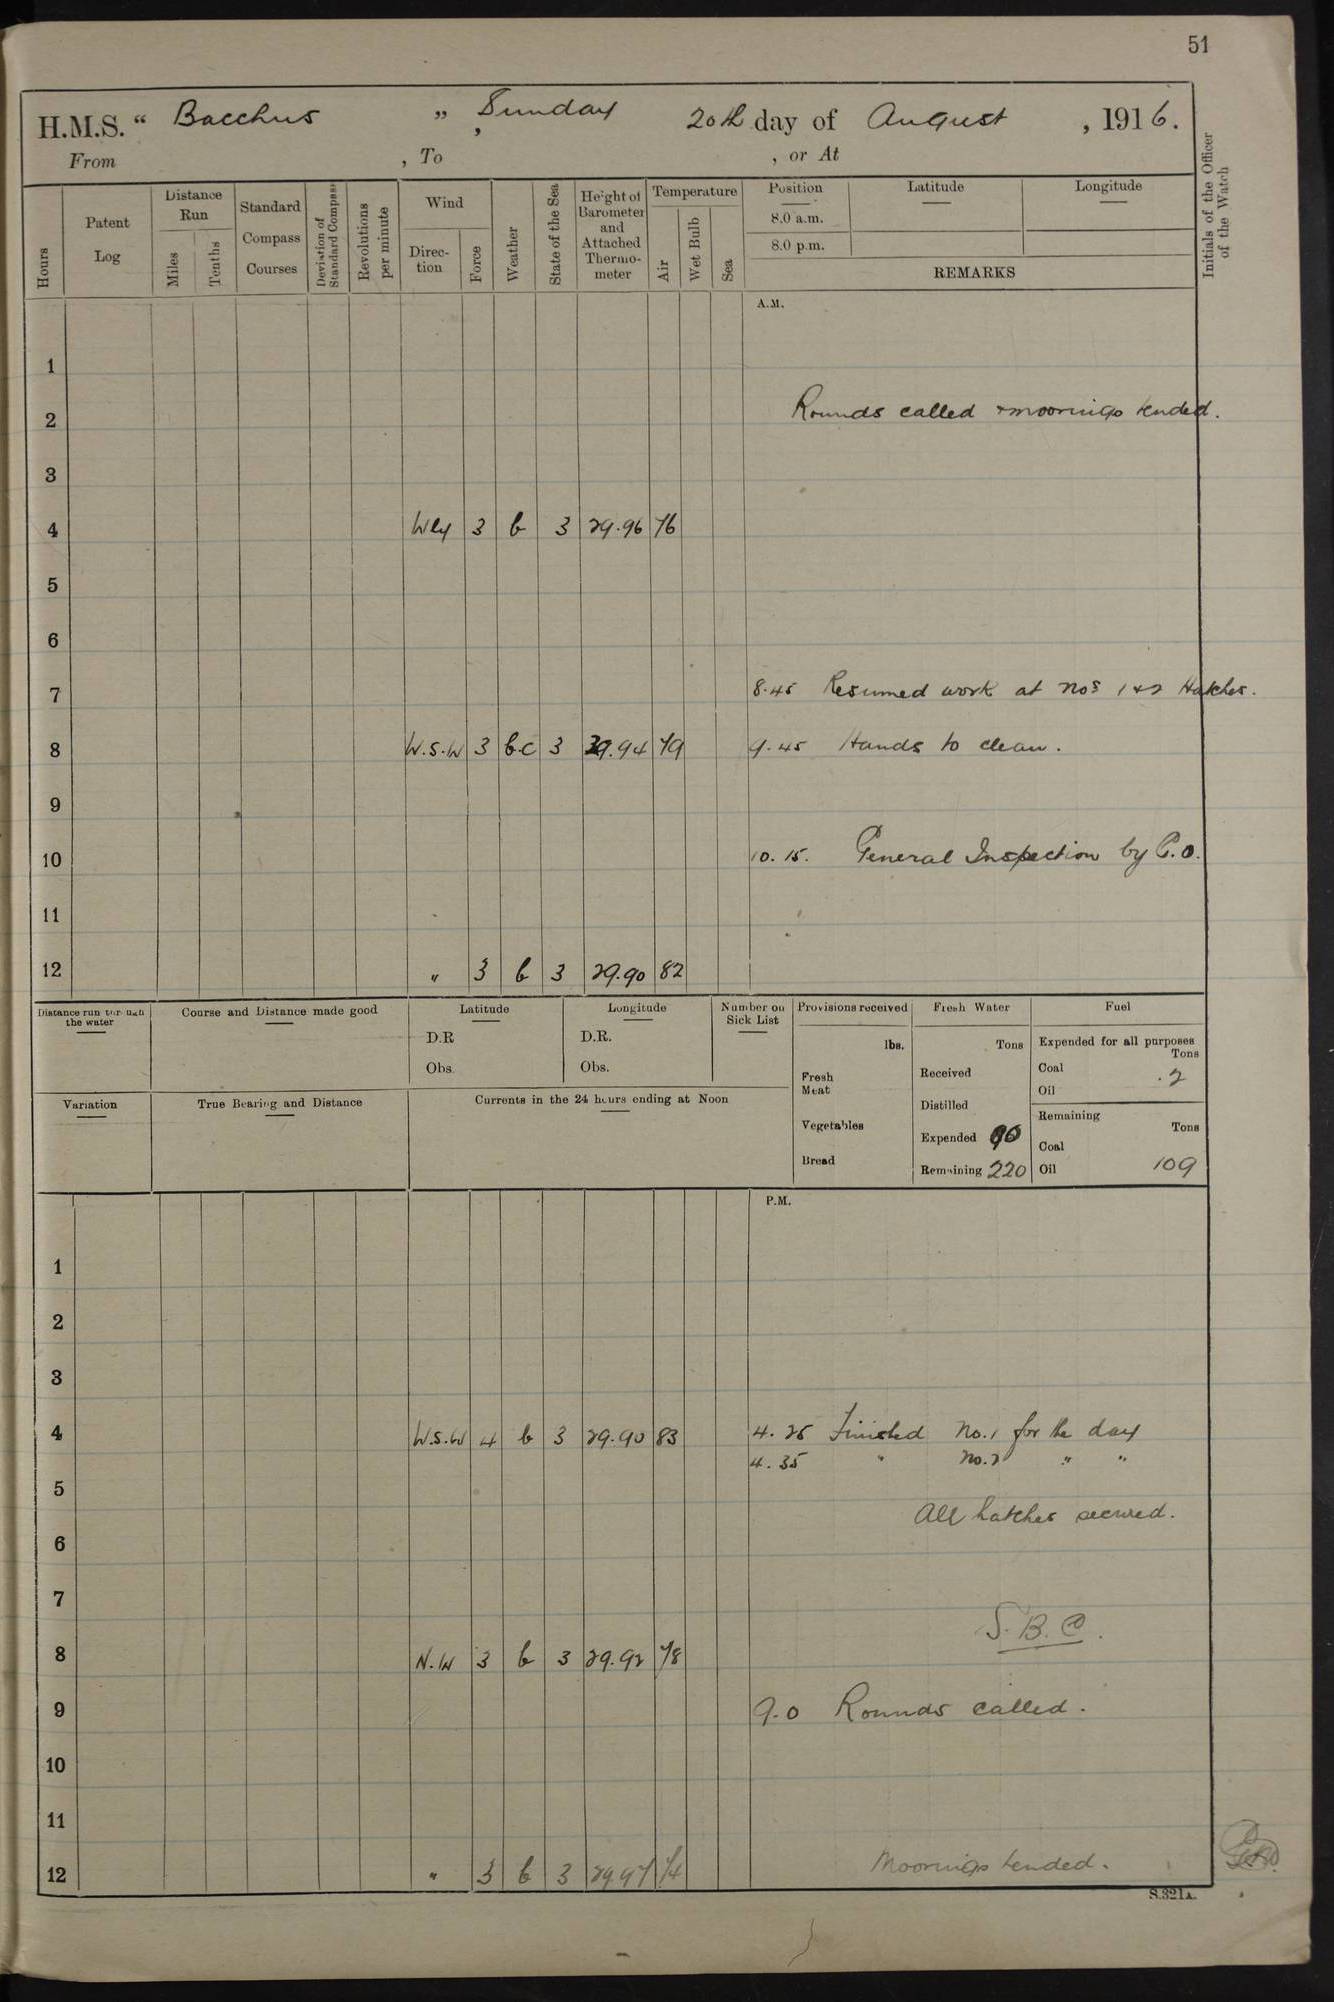 51
H.M.S. “ Bacchus ” , Sunday 20th day of August , 1916.
From , To , or At
Hours
Patent Log
Distance Run
Miles
Tenths
Standard Compass Courses
Deviation of Standard Compass
Revolutions per minute
Wind
Direction
Force
Weather
State of the Sea
Height of Barometer and Attached Thermometer
Temperature
Air
Wet Bulb
Sea
Position Latitude Longitude
8.0 a.m.
8.0 p.m.
REMARKS
Initials of the Officer of the Watch
A.M.
1
2 Rounds called & moorings tended.
3
4 Wly 3 b 3 29.96 76
5
6
7 8.45 Resumed work at Nos 1 & 2 Hatches.
8 W.S.W 3 b.c 3 29.94 79 9.45 Hands to clean.
9
10 10.15. General Inspection by C.O.
11
12 " 3 b 3 29.90 82
Distance run through the water
Course and Distance made good
Latitude
D.R
Obs.
Longitude
D.R.
Obs.
Number on Sick List
Provisions received
lbs.
Fresh Meat
Vegetables
Bread
Fresh Water
Tons
Received
Distilled
Expended
Remaining 220
Fuel
Expended for all purposes
Tons
Coal
Oil .2
Remaining
Tons
Coal
Oil 109
Variation
True Bearing and Distance
Currents in the 24 hours ending at Noon
P.M.
1
2
3
4 W.S.W 4 b 3 29.90 83 4.25 Finished No.1 for the day
4.35 " No.2 " "
5
All hatches secured.
6
7
S.B.C.
8 N.W 3 b 3 29.92 78
9 9.0 Rounds called.
10
11
12 " 3 b 3 29.97 74 Moorings tended.
S.321A.